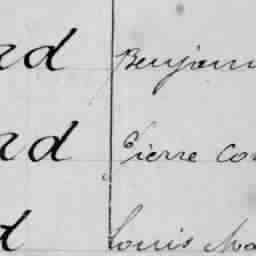 rd Benjami
rd Pierre Co
d Louis Ma